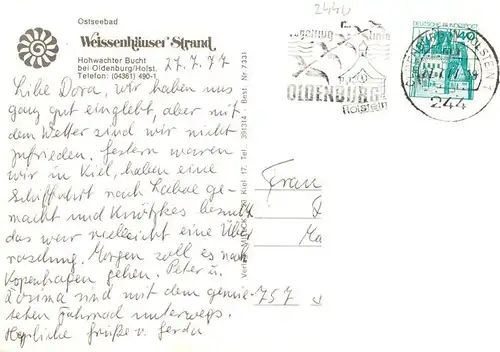 2440
Ostseebad
Weissenhäuser Strand
Hohwachter Bucht
bei Oldenburg/Holst.
Telefon: (04361) 490-1
27.7.77
Liebe Dora, wir haben uns
ganz gut eingelebt, aber mit
dem Wetter sind wir nicht
zufrieden. Gestern waren
wir in Kiel, haben eine
Schiffahrt nach Laboe ge-
macht und Knützkes besucht
das war vielleicht eine Über
raschung. Morgen soll es nach
Kopenhagen gehen. Peter u.
Cosima sind mit dem gemie-
teten Fahrrad unterwegs.
Herzliche Grüße v. Gerda
391314 · Best. Nr 7331
Kiel 17. Tel.
Verlag
Vogelflug linie
OLDENBURG
Holstein
DEUTSCHE BUNDESPOST
40
244
Frau
757